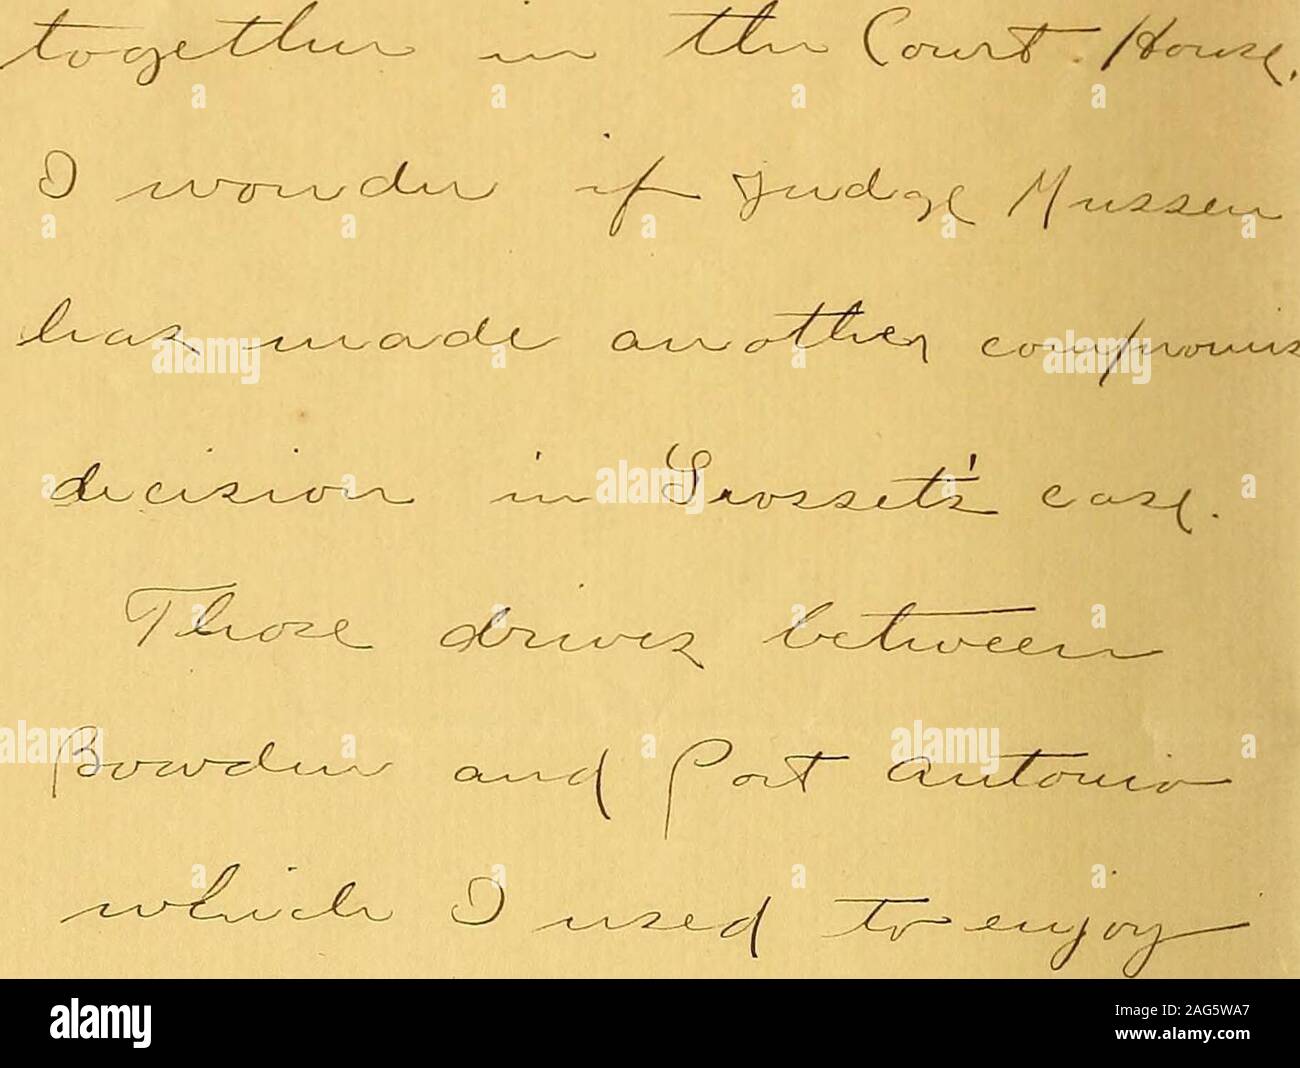 together in the Court House.
I wonder if Judge Mussen
has made another compromis
decision in Grosset's case.
Those drives between
Bowden and Port Antonio
which I used to enjoy
a a a a
a a a a a
alamy alamy alamy
a alamy a
a a a a
alamy a a alamy a
a a a a
alamy
Image ID: 2AG5WA7
www.alamy.com